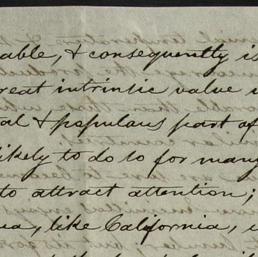 able, & consequently is
reat intrinsic value
al & populous part of
likely to do so for many
to attract attention;
ea, like California,